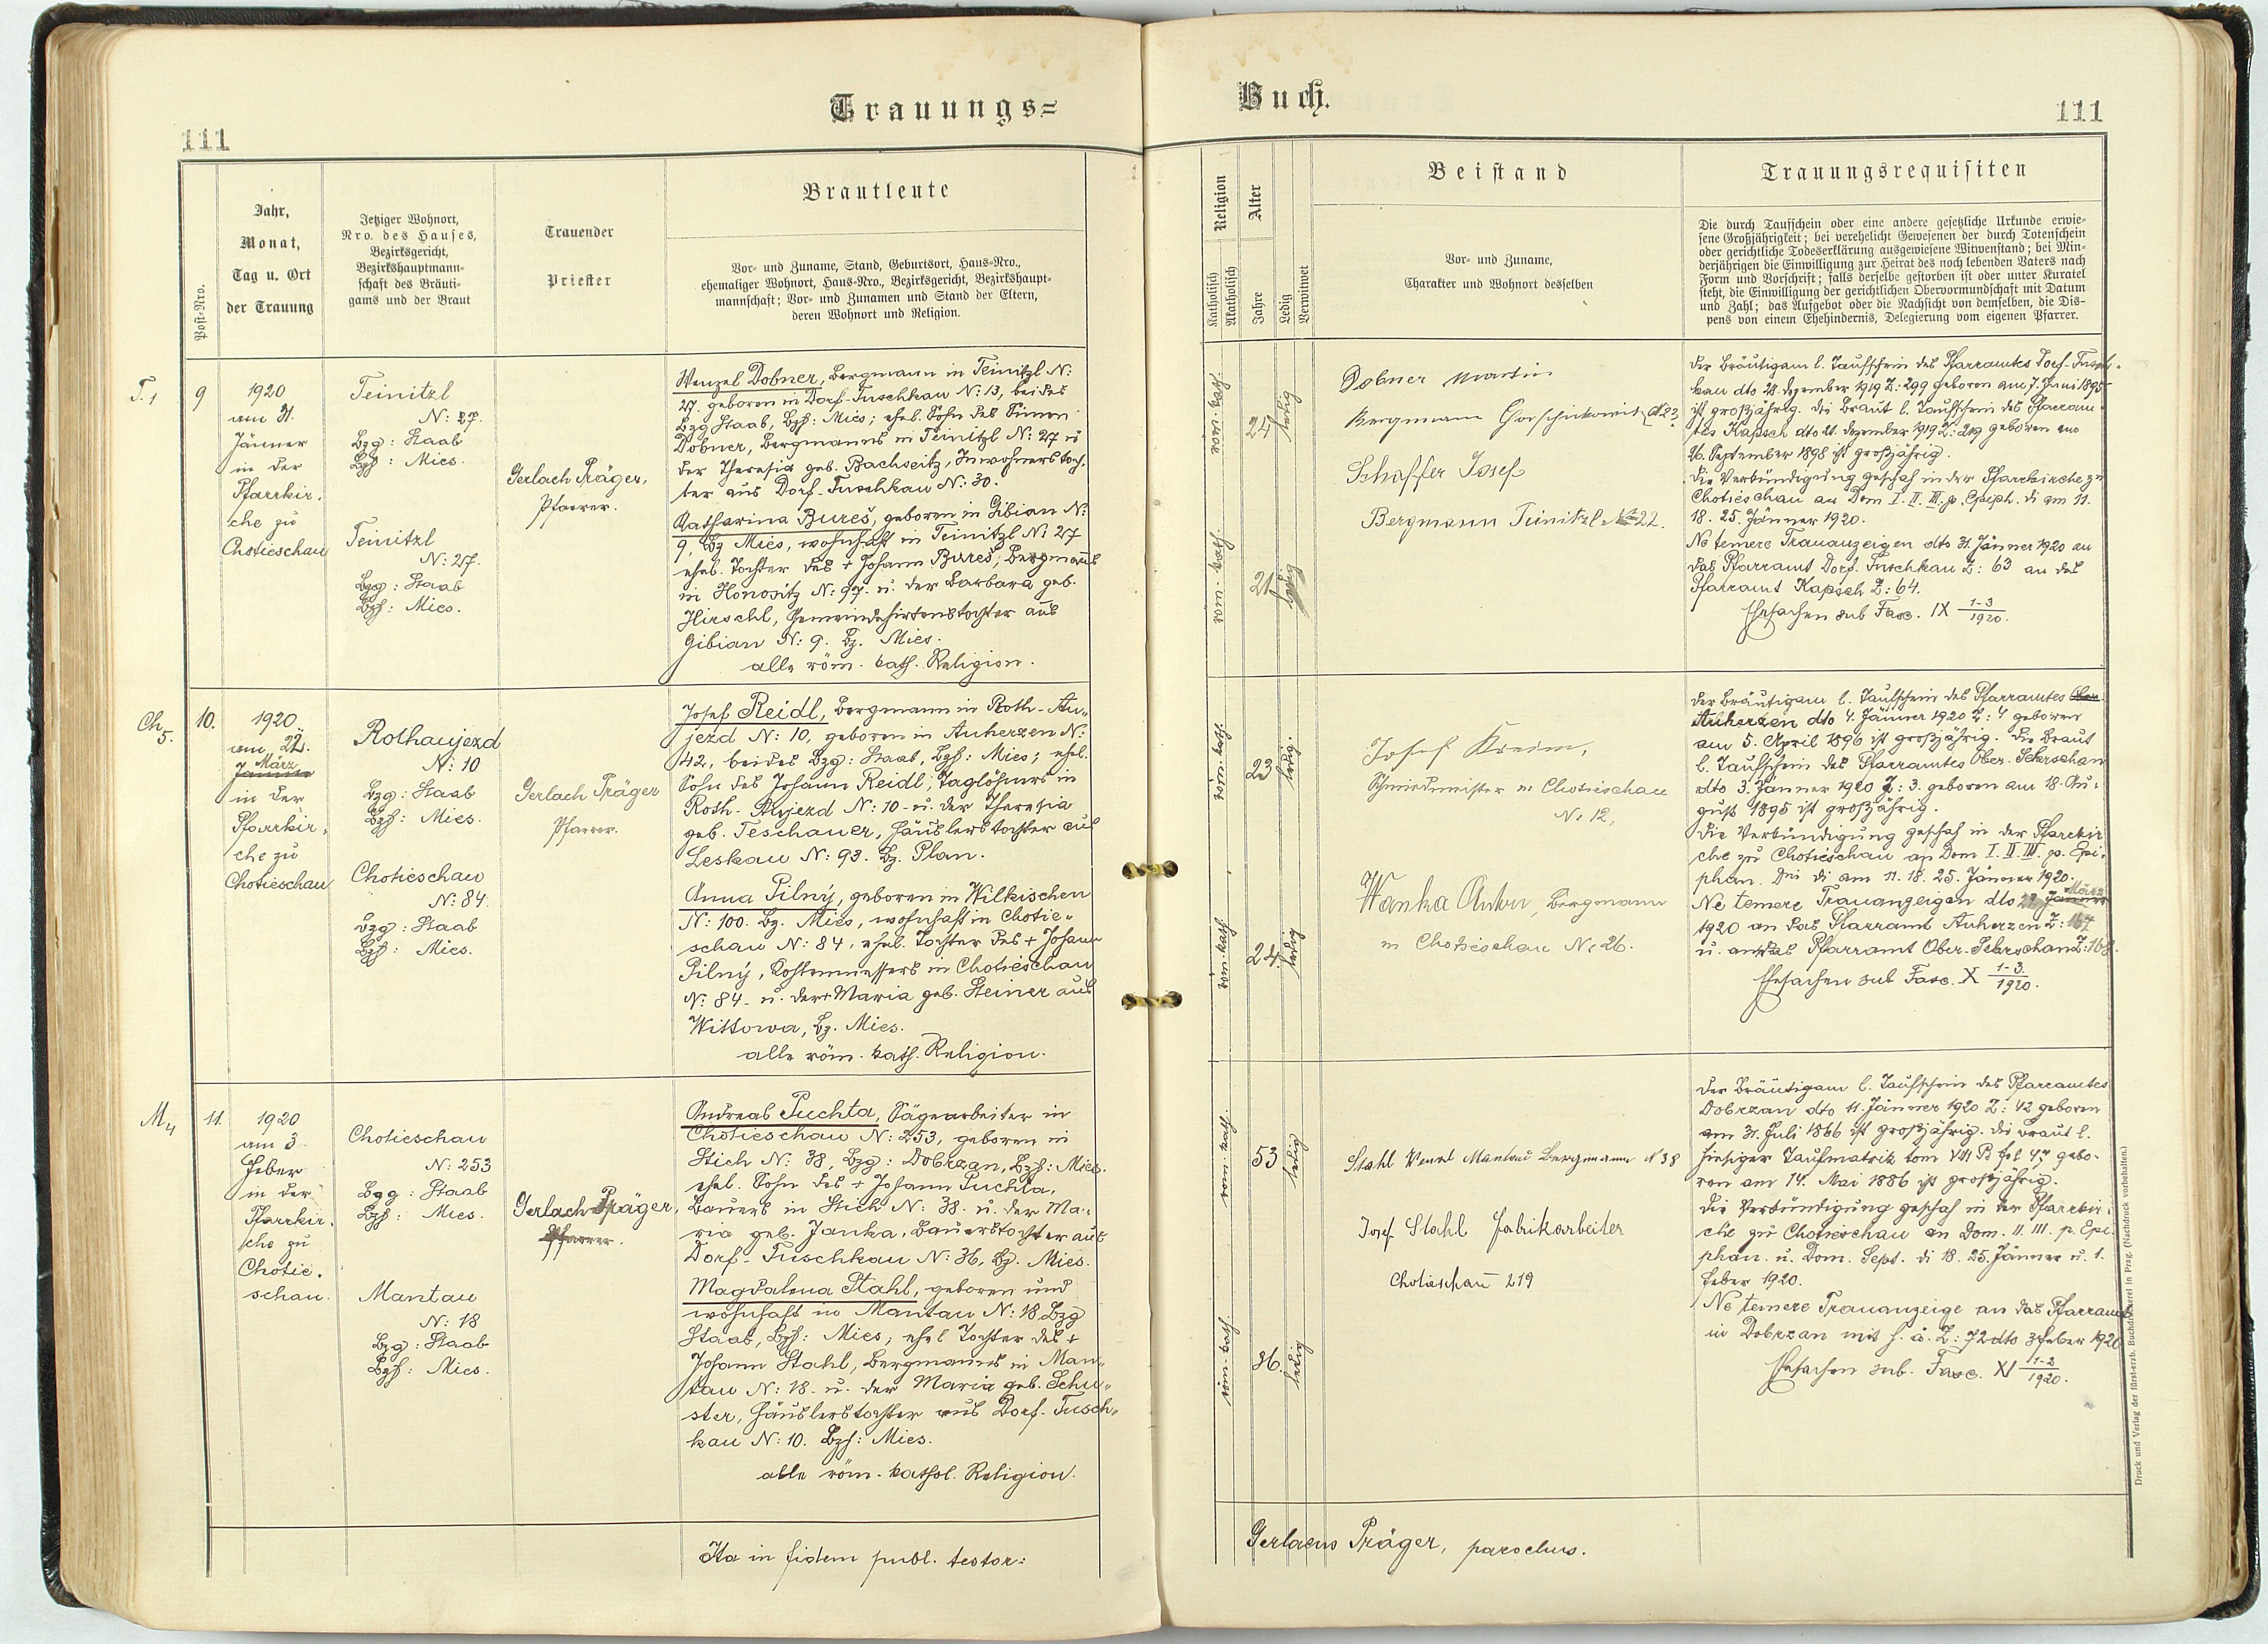 Trauungs=
111
Post-Nro.
Jahr,
Monat,
Tag u. Ort
der Trauung
Jetziger Wohnort,
Nro. des Hauses,
Bezirksgericht,
Bezirkshauptmann-
schaft des Bräuti-
gams und der Braut
Trauender
Priester
Brautleute
Vor- und Zuname, Stand, Geburtsort, Haus-Nro.,
ehemaliger Wohnort, Haus-Nro., Bezirksgericht, Bezirkshaupt-
mannschaft; Vor- und Zunamen und Stand der Eltern,
deren Wohnort und Religion.
T. 1
9
1920
am 31.
Jänner
in der
Pfarrkir-
che zu
Chotieschau
Teinitzl
N: 27.
Bzg: Staab
Bzh: Mies.
Teinitzl
N: 27.
Bzg: Staab
Bzh: Mies.
Gerlach Präger,
Pfarrer.
Wenzel Dobner, Bergmann in Teinitzl N:
27. geboren in Dorf-Tuschkau N: 13, beides
Bzg Staab, Bzh: Mies; ehel. Sohn des Simon
Dobner, Bergmanns in Teinitzl N: 27 u
der Theresia geb. Bachseitz, Inwohnerstoch-
ter aus Dorf-Tuschkau N: 30.
Katharina Bureš, geboren in Gibian N:
9, Bz Mies, wohnhaft in Teinitzl N: 27
ehel. Tochter des + Johann Bureš, Bergmanns
in Honositz N: 97. u. der Barbara geb.
Hirschl, Gemeindehirtenstochter aus
Gibian N: 9. Bz. Mies.
alle röm. kath. Religion.
Ch 5.
10.
1920
am 22.
März
Jänner
in der
Pfarrkir-
che zu
Chotieschau
Rothaujezd
N: 10
Bzg: Staab
Bzh: Mies.
Chotieschau
N: 84.
Bzg: Staab
Bzh: Mies.
Gerlach Präger
Pfarrer.
Josef Reidl, Bergmann in Roth-Au-
jezd N: 10, geboren in Auherzen N:
42, beides Bzg: Staab, Bzh: Mies; ehel.
Sohn des Johann Reidl, Taglöhners in
Roth-Aujezd N: 10 - u. der Theresia
geb. Teschauer, Häuslerstochter aus
Leskau N: 93. Bz. Plan.
Anna Pilný, geboren in Wilkischen
N: 100. Bz. Mies, wohnhaft in Chotie-
schau N: 84, ehel. Tochter des + Johann
Pilný, Kohlenmessers in Chotieschau
N: 84 - u. der + Maria geb. Steiner aus
Wittowa, Bz. Mies.
alle röm. kath. Religion.
M 4
11.
1920
am 3.
Feber
in der
Pfarrkir-
che zu
Chotie-
schau.
Chotieschau
N: 253
Bzg: Staab
Bzh: Mies.
Mantau
N: 18
Bzg: Staab
Bzh: Mies.
Gerlach Präger,
Pfarrer.
Andreas Puchta, Sägearbeiter in
Chotieschau N: 253, geboren in
Stich N: 38, Bzg: Dobrzan, Bzh: Mies.
ehel. Sohn des + Johann Puchta,
Bauers in Stich N: 38. u. der Ma-
ria geb. Janka, Bauerstochter aus
Dorf-Tuschkau N: 36, Bz. Mies.
Magdalena Stahl, geboren und
wohnhaft in Mantau N: 18, Bzg
Staab, Bzh: Mies; ehel Tochter des +
Johann Stahl, Bergmanns in Man-
tau N: 18 - u. der Maria geb. Schu-
ster, Häuslerstochter aus Dorf-Tusch-
kau N: 10. Bzh: Mies.
alle röm. kathol. Religion.
Ita in fidem publ. testor:
Buch.
111
Religion
Katholisch
Akatholisch
Alter
Jahre
Ledig
Verwitwet
Beistand
Vor- und Zuname,
Charakter und Wohnort desselben
Trauungsrequisiten
Die durch Taufschein oder eine andere gesetzliche Urkunde erwie-
sene Großjährigkeit; bei verehelicht Gewesenen der durch Totenschein
oder gerichtliche Todeserklärung ausgewiesene Witwenstand; bei Min-
derjährigen die Einwilligung zur Heirat des noch lebenden Vaters nach
Form und Vorschrift; falls derselbe gestorben ist oder unter Kuratel
steht, die Einwilligung der gerichtlichen Obervormundschaft mit Datum
und Zahl; das Aufgebot oder die Nachsicht von demselben, die Dis-
pens von einem Ehehindernis, Delegierung vom eigenen Pfarrer.
röm. kath.
24
ledig
röm. kath.
21
ledig
Dobner Martin
Bergmann
Schaffer Josef
Bergmann Teinitzl No 22.
Der Bräutigam l. Taufschein des Pfarramtes Dorf-Tusch-
kau dto 28. Dezember 1919 Z: 299 geboren am 7. Juni 1895
ist großjährig. Die Braut l. Taufschein des Pfarram-
tes Kapsch dto 21. Dezember 1919 Z: 219 geboren am
26. September 1898 ist großjährig.
Die Verkündigung geschah in der Pfarrkirche zu
Chotieschau an Dom I. II. III. p. Epiph. di am 11.
18. 25. Jänner 1920.
Ne temere Trauanzeigen dto 31. Jänner 1920 an
das Pfarramt Dorf-Tuschkau Z: 63 an das
Pfarramt Kapsch Z: 64.
Ehesachen sub Fasc. IX 1-3/1920.
röm. kath.
23
ledig.
röm. kath.
24.
ledig
Josef Kreim,
Schmiedmeister in Chotieschau
N: 12,
Wanka Anton, Bergmann
in Chotieschau N: 26.
Der Bräutigam l. Taufschein des Pfarramtes
Auherzen dto 4. Jänner 1920 Z: 4 geboren
am 5. April 1896 ist großjährig. Die Braut
l. Taufschein des Pfarramtes Ober-Sekerschan
dto 3. Jänner 1920 Z: 3. geboren am 18. Au-
gust 1895 ist großjährig.
Die Verkündigung geschah in der Pfarrkir
che zu Chotieschau an Dom I. II. III. p. Epi-
phan. di am 11. 18. 25. Jänner 1920.
März
Ne temere Trauanzeigen dto 22. Jänner
1920 an das Pfarramt Auherzen Z: 167
u. an das Pfarramt Ober-Sekerschan Z: 168.
Ehesachen sub Fasc. X 1-3/1920.
röm. kath.
53
ledig
röm. kath.
36.
ledig
Stahl Wenzl Mantau Bergmann N 38
Josef Stahl Fabrikarbeiter
Chotieschau 219
Der Bräutigam l. Taufschein des Pfarramtes
Dobrzan dto 11. Jänner 1920 Z: 42 geboren
am 31. Juli 1866 ist großjährig. Die Braut l.
hiesiger Taufmatrik tom VIII fol 47 gebo-
ren am 14. Mai 1886 ist großjährig.
Die Verkündigung geschah in der Pfarrkir-
che zu Chotieschau an Dom. II. III. p. Epi-
phan. u. Dom. Sept. di 18. 25. Jänner u. 1.
Feber 1920.
Ne temere Trauanzeige an das Pfarramt
in Dobrzan mit h. ä. Z: 72 dto 3 Feber 1920
Ehesachen sub. Fasc. XI 1-2/1920.
Gerlacus Präger, parochus.
Druck und Verlag der fürst-erzb. Buchdruckerei in Prag. (Nachdruck vorbehalten.)